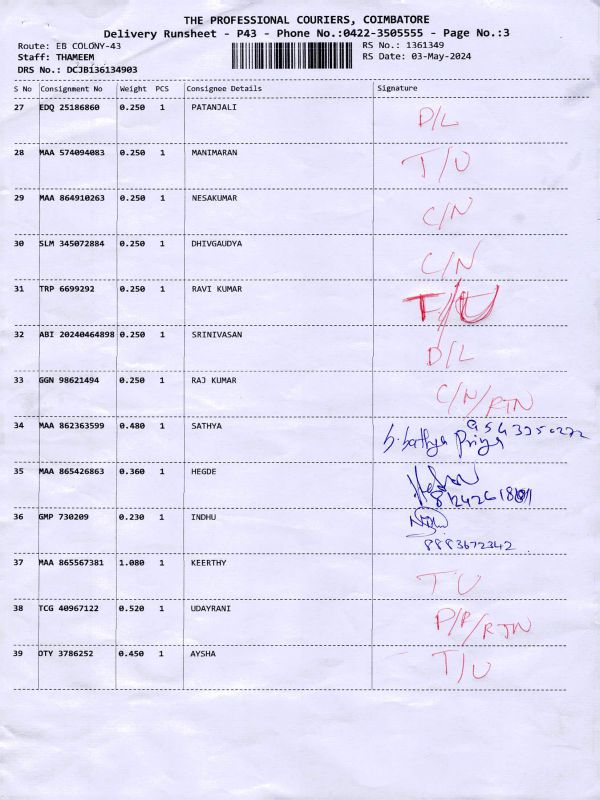 THE PROFESSIONAL COURIERS, COIMBATORE
Delivery Runsheet - P43 - Phone No.:0422-3505555 - Page No.:3
Route: EB COLONY-43 RS No.: 1361349
Staff: THAMEEM RS Date: 03-May-2024
DRS No.: DCJB136134903
S No Consignment No Weight PCS Consignee Details Signature
27 EDQ 25186860 0.250 1 PATANJALI D/L
28 MAA 574094083 0.250 1 MANIMARAN T/U
29 MAA 864910263 0.250 1 NESAKUMAR C/N
30 SLM 345072884 0.250 1 DHIVGAUDYA C/N
31 TRP 6699292 0.250 1 RAVI KUMAR T/U
32 ABI 20240464898 0.250 1 SRINIVASAN D/L
33 GGN 98621494 0.250 1 RAJ KUMAR C/N/RTN
34 MAA 862363599 0.480 1 SATHYA Priya
35 MAA 865426863 0.360 1 HEGDE
36 GMP 730209 0.230 1 INDHU
8883672342
37 MAA 865567381 1.080 1 KEERTHY TU
38 TCG 40967122 0.520 1 UDAYRANI P/P/RTN
39 OTY 3786252 0.450 1 AYSHA T/U